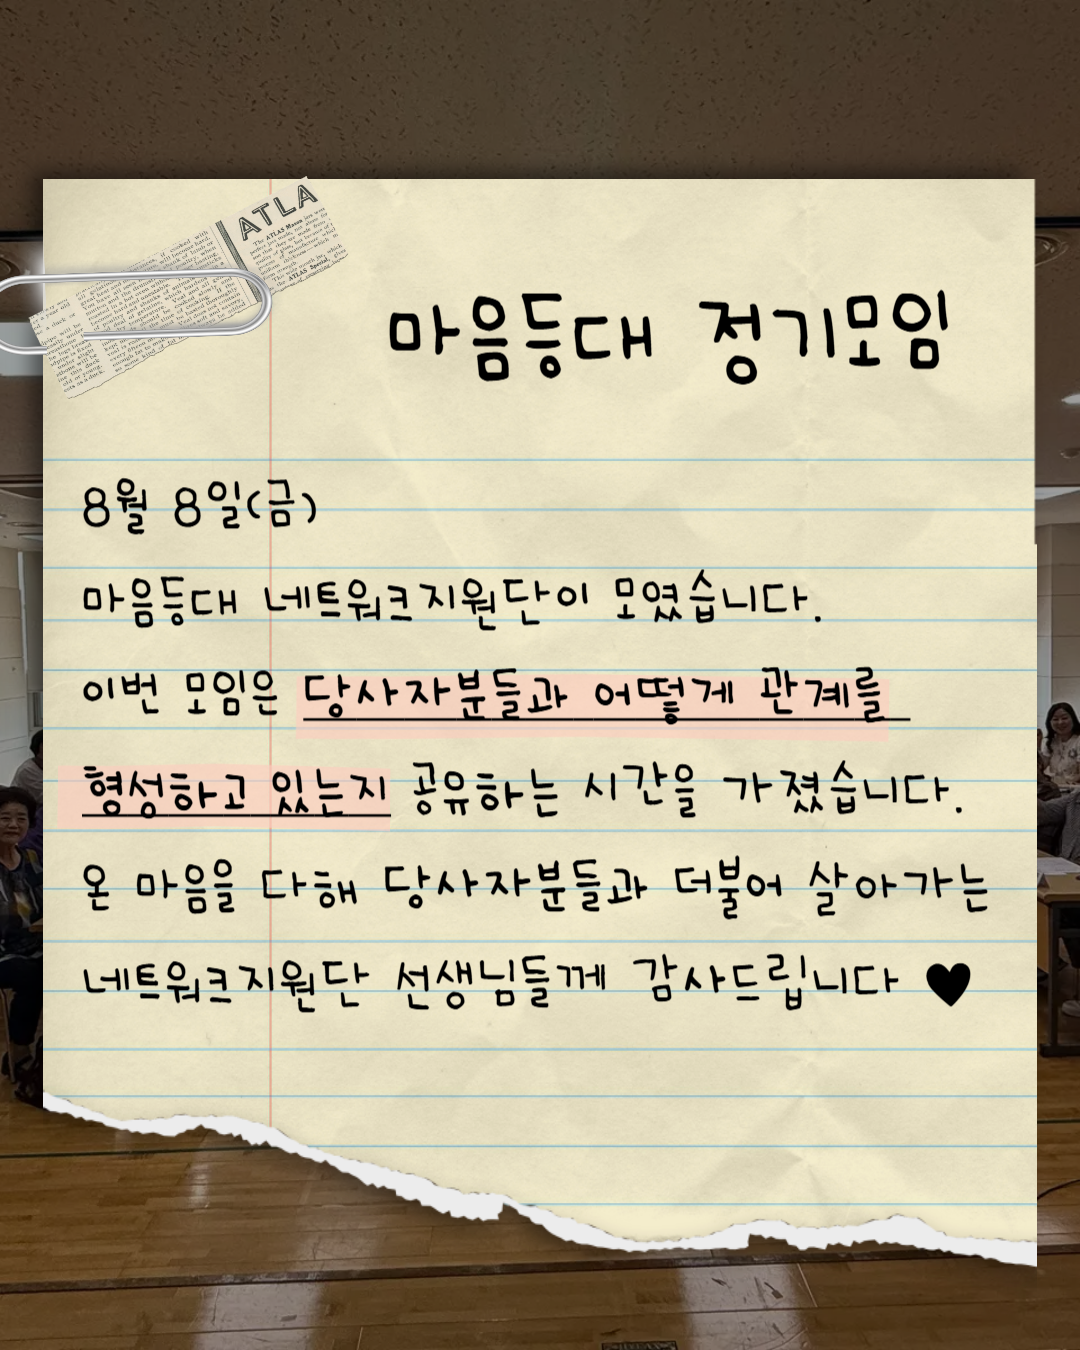 ATLA
마음등대 정기모임
8월 8일(금)
마음등대 네트워크지원단이 모였습니다.
이번 모임은 당사자분들과 어떻게 관계를
형성하고 있는지 공유하는 시간을 가졌습니다.
온 마음을 다해 당사자분들과 더불어 살아가는
네트워크지원단 선생님들께 감사드립니다 ♥